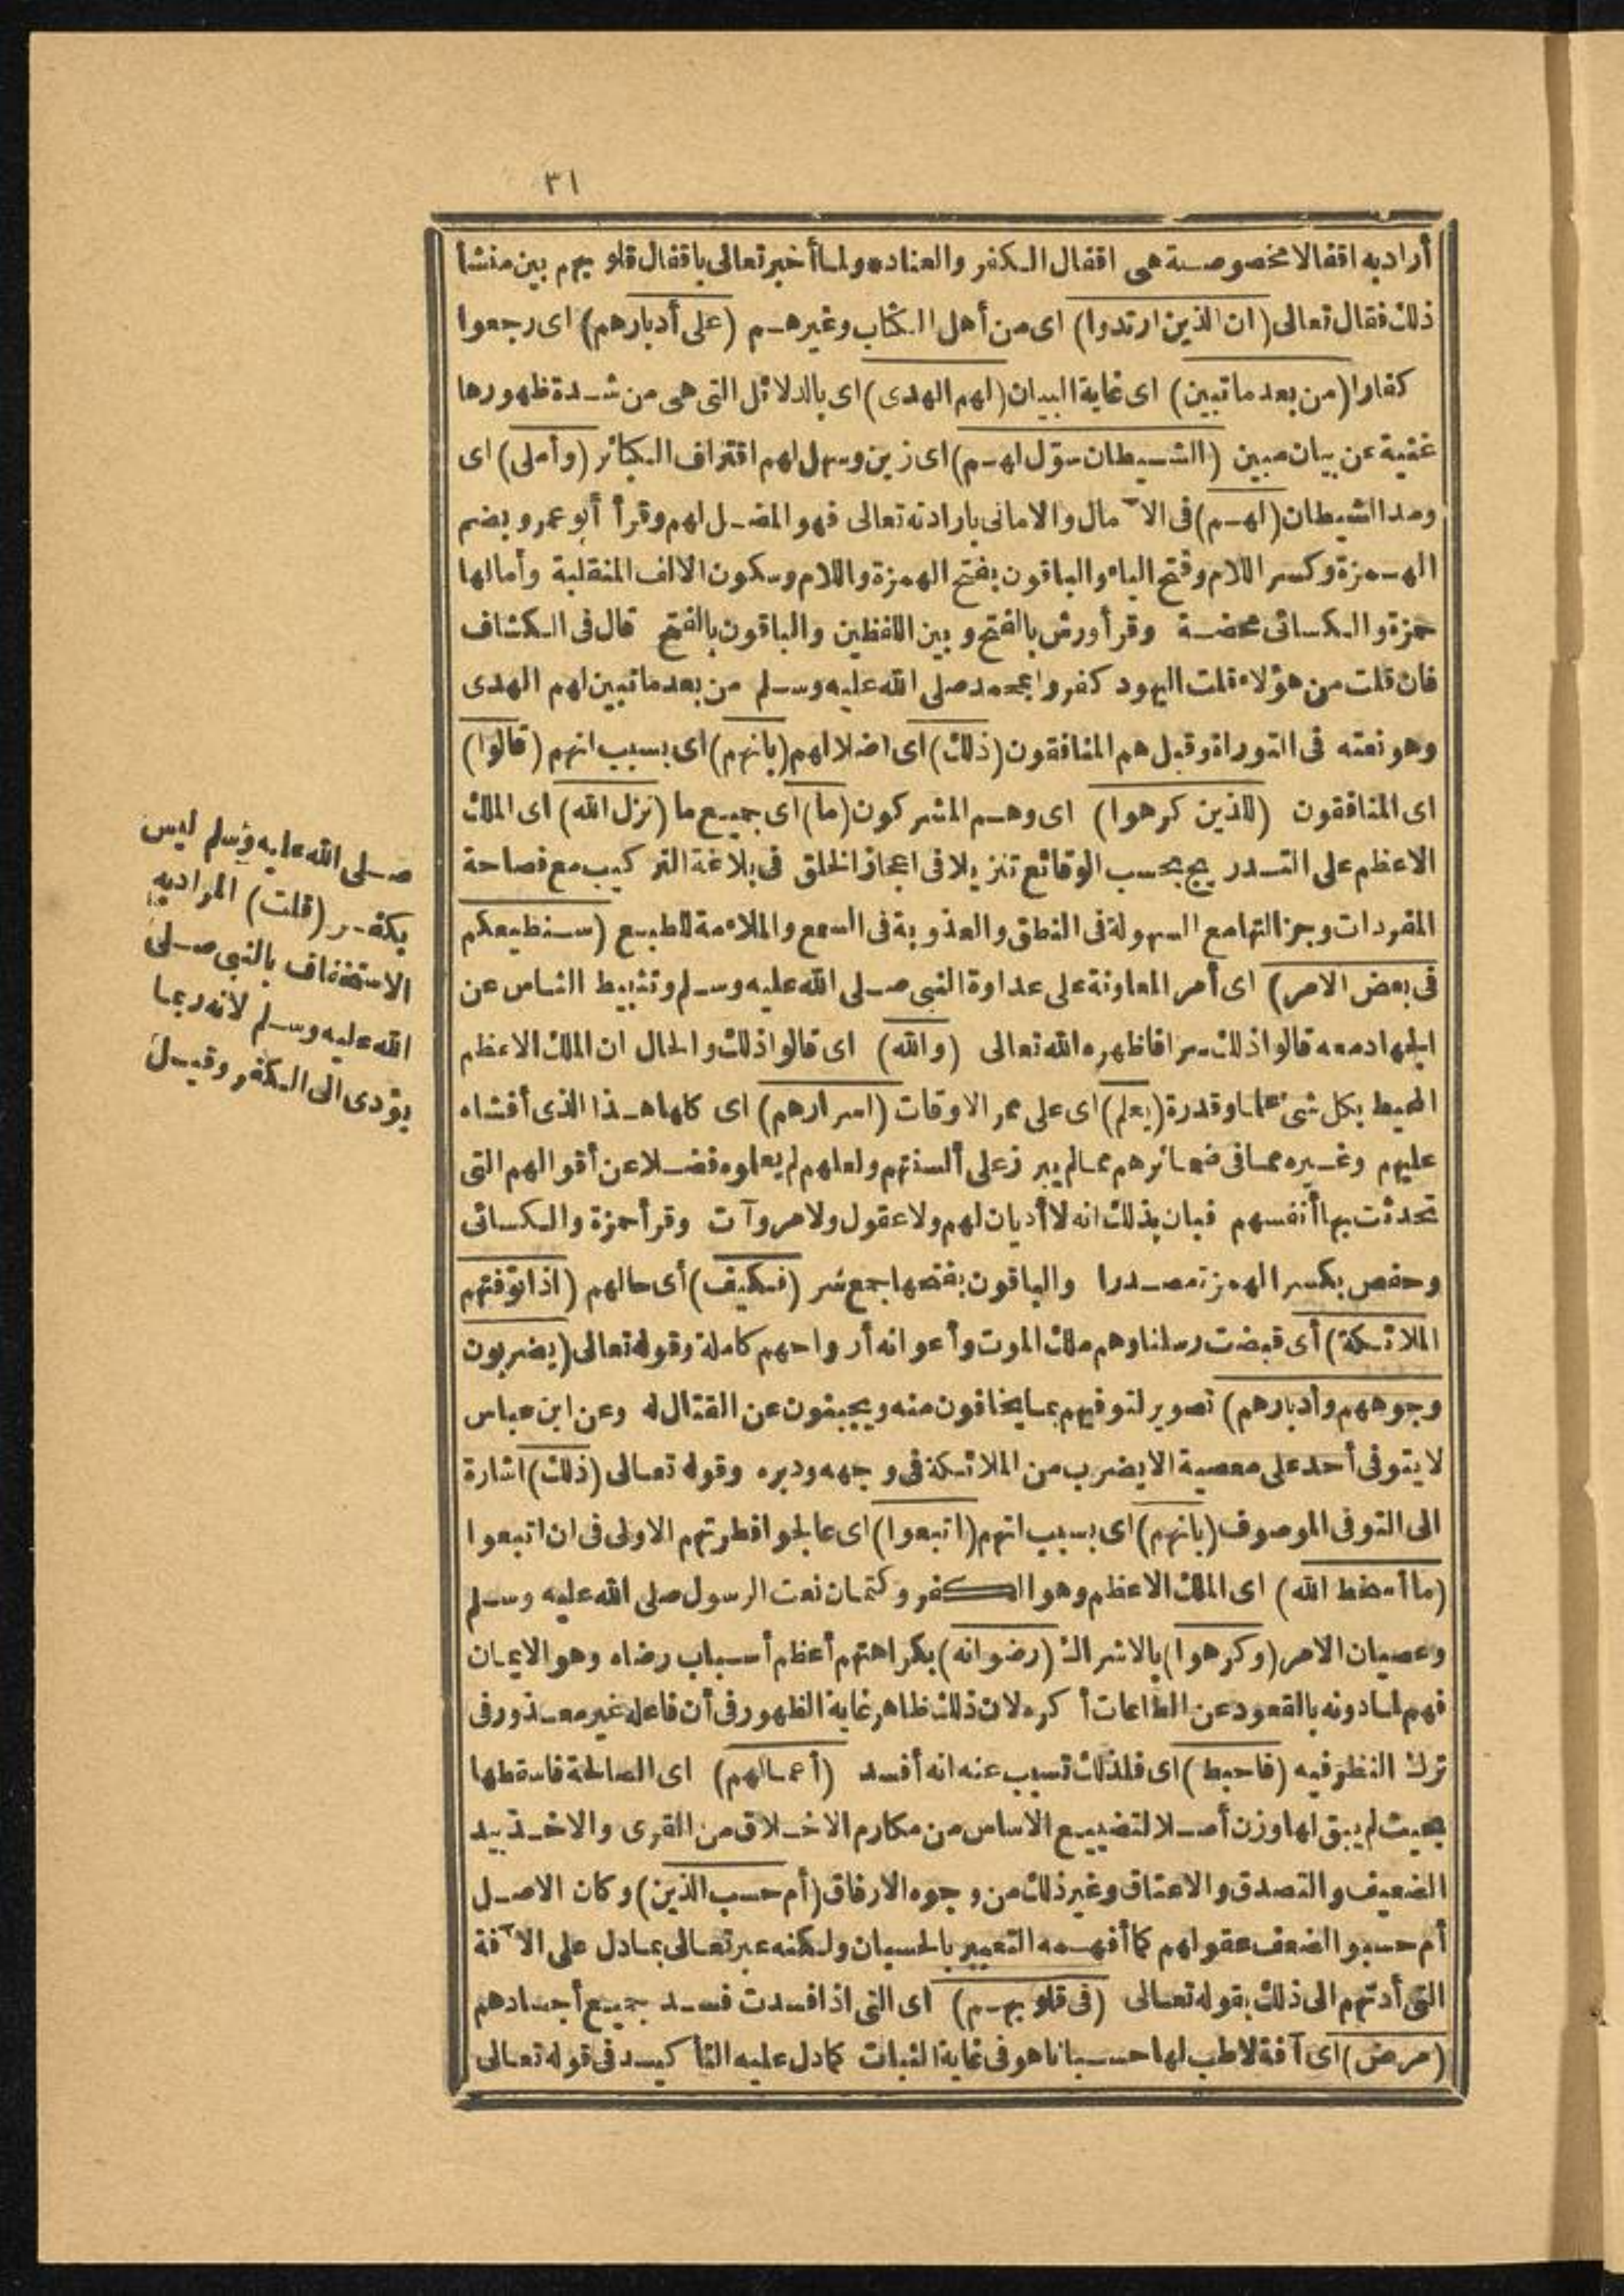 ٣١
أراد به اقفالا مخصوصة هى اقفال الكفر والعناد ولما أخبر تعالى باقفال قلوبهم بين منشأ
ذلك فقال تعالى (ان الذين ارتدوا) اى من أهل الكتاب وغيرهم (على أدبارهم) اى رجعوا
كفارا (من بعد ما تبين) اى غاية البيان (لهم الهدى) اى بالدلائل التى هى من شدة ظهورها
غنية عن بيان مبين (الشيطان سوّل لهم) اى زين وسهل لهم اقتراف الكبائر (وأملى) اى
ومد الشيطان (لهم) فى الآمال والامانى بارادته تعالى فهو المضل لهم وقرأ أبو عمرو بضم
الهمزة وكسر اللام وفتح الياء والباقون بفتح الهمزة واللام وسكون الالف المنقلبة وأمالها
حمزة والكسائى محضة وقرأ ورش بالفتح و بين اللفظين والباقون بالفتح قال فى الكشاف
فان قلت من هؤلاء قلت اليهود كفروا بمحمد صلى الله عليه وسلم من بعد ما تبين لهم الهدى
وهو نعته فى التوراة وقيل هم المنافقون (ذلك) اى اضلالهم (بانهم) اى بسبب انهم (قالوا)
اى المنافقون (للذين كرهوا) اى وهم المشركون (ما) اى جميع ما (نزل الله) اى الملك
الاعظم على التدريج بحسب الوقائع تنزيلا فى اعجاز الخلق فى بلاغة التركيب مع فصاحة
المفردات وجزالتها مع السهولة فى النطق والعذوبة فى السمع والملاءمة للطبع (سنطيعكم
فى بعض الامر) اى أمر المعاونة على عداوة النبى صلى الله عليه وسلم وتثبيط الناس عن
الجهاد معه قالوا ذلك سرا فاظهره الله تعالى (والله) اى قالوا ذلك والحال ان الملك الاعظم
المحيط بكل شئ علما وقدرة (يعلم) اى على ممر الاوقات (اسرارهم) اى كلها هذا الذى أفشاه
عليهم وغيره مما فى ضمائرهم مما لم يبرز على ألسنتهم ولعلهم لم يعلموه فضلا عن أقوالهم التى
تحدثت بها أنفسهم فبان بذلك انه لا أديان لهم ولا عقول ولا مروآت وقرأ حمزة والكسائى
وحفص بكسر الهمزة مصدرا والباقون بفتحها جمع سر (فكيف) أى حالهم (اذا توفتهم
الملائكة) أى قبضت رسلنا وهم ملك الموت وأعوانه أرواحهم كاملة وقوله تعالى (يضربون
وجوههم وأدبارهم) تصوير لتوفيهم بما يخافون منه ويجبنون عن القتال له وعن ابن عباس
لا يتوفى أحد على معصية الا يضرب من الملائكة فى وجهه ودبره وقوله تعالى (ذلك) اشارة
الى التوفى الموصوف (بانهم) اى بسبب انهم (اتبعوا) اى عالجوا فطرتهم الاولى فى ان اتبعوا
(ما أسخط الله) اى الملك الاعظم وهو الكفر وكتمان نعت الرسول صلى الله عليه وسلم
وعصيان الامر (وكرهوا) بالاشراك (رضوانه) بكراهتهم أعظم أسباب رضاه وهو الايمان
فهم لما دونه بالقعود عن الطاعات أكره لان ذلك ظاهر غاية الظهور فى أن فاعله غير معذور فى
ترك النظر فيه (فاحبط) اى فلذلك تسبب عنه انه أفسد (أعمالهم) اى الصالحة فاسقطها
بحيث لم يبق لها وزن أصلا لتضييع الاساس من مكارم الاخلاق من القرى والاخذ بيد
الضعيف والتصدق والاعتاق وغير ذلك من وجوه الارفاق (أم حسب الذين) وكان الاصل
أم حسبوا لضعف عقولهم كما أفهمه التعبير بالحسبان ولكنه عبر تعالى بما دل على الآفة
التى أدتهم الى ذلك بقوله تعالى (فى قلوبهم) اى التى اذا فسدت فسد جميع أجسادهم
(مرض) اى آفة لا طب لها حسبانا هو فى غاية الثبات كما دل عليه التأكيد فى قوله تعالى
صلى الله عليه وسلم ليس
بكفر (قلت) المراد به
الاستخفاف بالنبى صلى
الله عليه وسلم لانه ربما
يؤدى الى الكفر وقيل